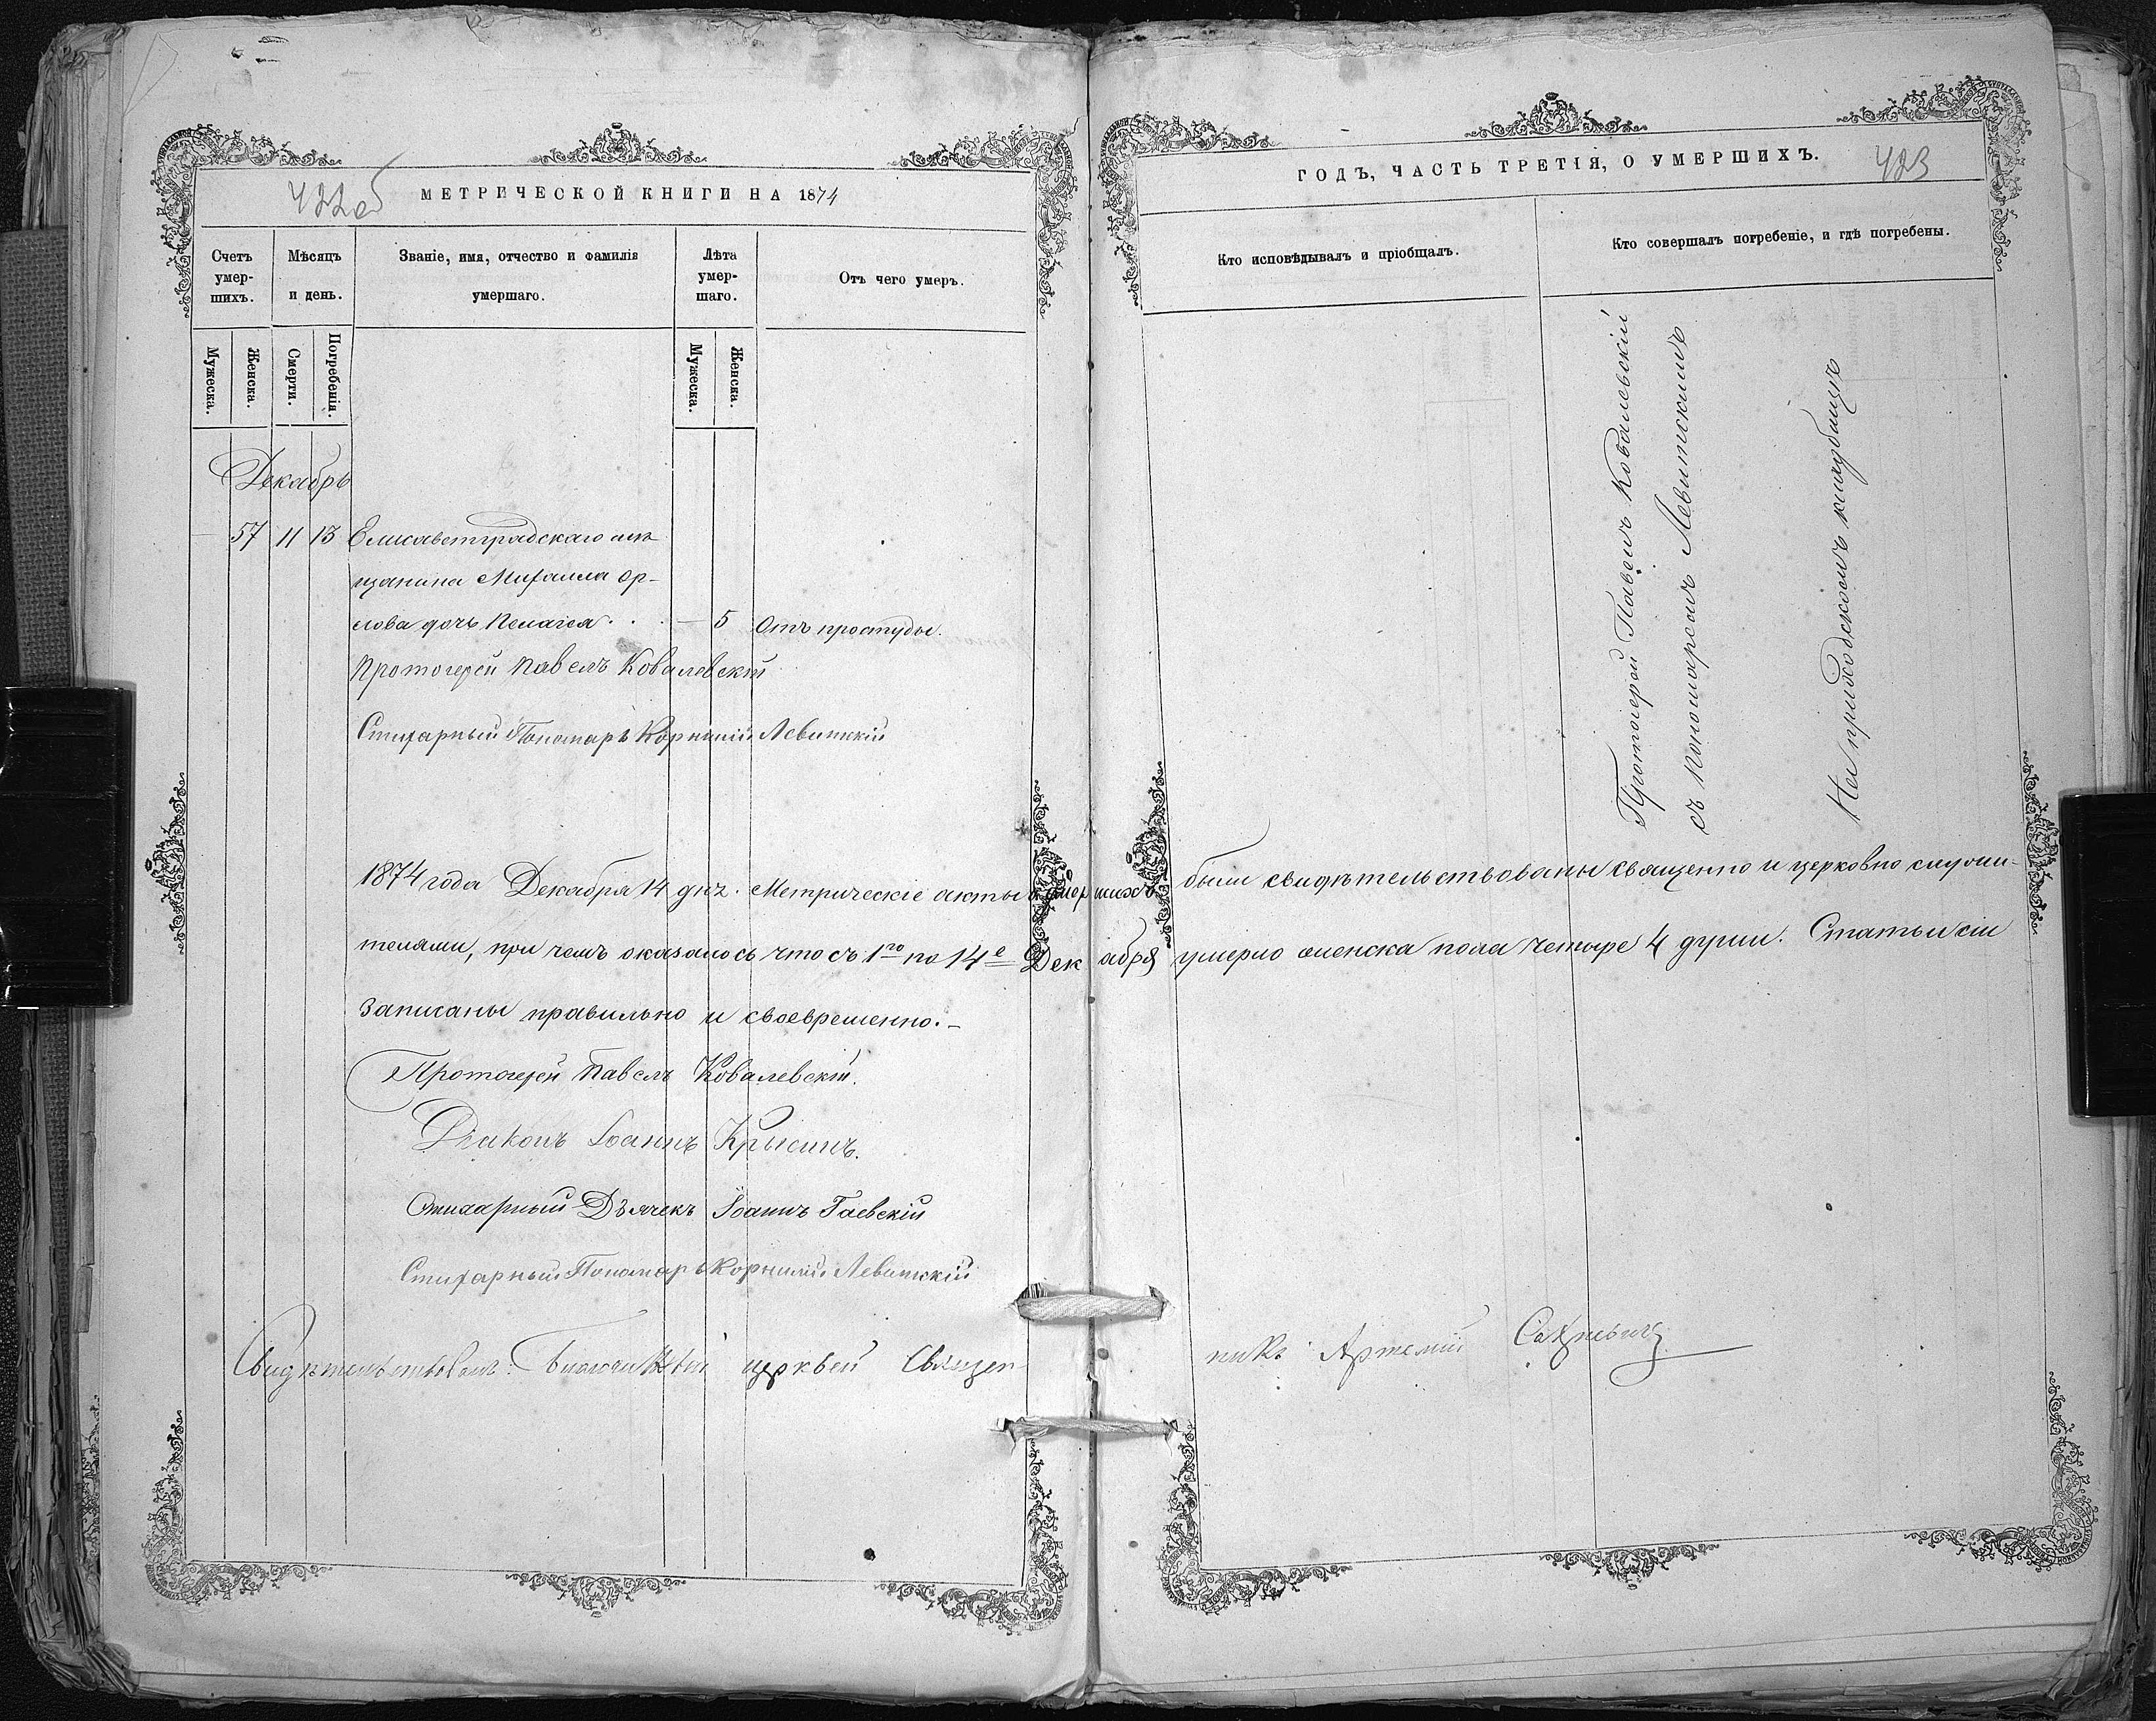 422об
МЕТРИЧЕСКОЙ КНИГИ НА 1874
Счетъ умер-шихъ.
Мѣсяцъ и день.
Званіе, имя, отчество и фамилія умершаго.
Лѣта умер-шаго.
Отъ чего умеръ.
Мужеска.
Женска.
Смерти.
Погребенія.
Мужеска.
Женска.
Декабрь
57 11 13 Елисаветградскаго мѣ-
щанина Михаила Ор-
лова дочь Пелагея . . . — 5 Отъ простуды.
Протоіерей Павелъ Ковалевскій
Стихарный Пономарь Корнилій Левитскій
1874 года Декабря 14 дня. Метрическіе акты о умершихъ были свидѣтельствованы священно и церковно служи-
телями, при чемъ оказалось что съ 1го по 14е Декабря умерло женска пола четыре 4 души. Статьи сіи
записаны правильно и своевременно.-
Протоіерей Павелъ Ковалевскій.
Діаконъ Іоаннъ Крысинъ.
Стихарный Дьячекъ Іоаннъ Гаевскій
Стихарный Пономарь Корнилій Левитскій
Свидѣтельствовалъ: церквей Священ-
никъ Артемій
423
ГОДЪ, ЧАСТЬ ТРЕТІЯ, О УМЕРШИХЪ.
Кто исповѣдывалъ и пріобщалъ.
Кто совершалъ погребеніе, и гдѣ погребены.
Протоіерей Павелъ Ковалевскій
съ Пономаремъ Левитскимъ
На приходскомъ кладбищѣ